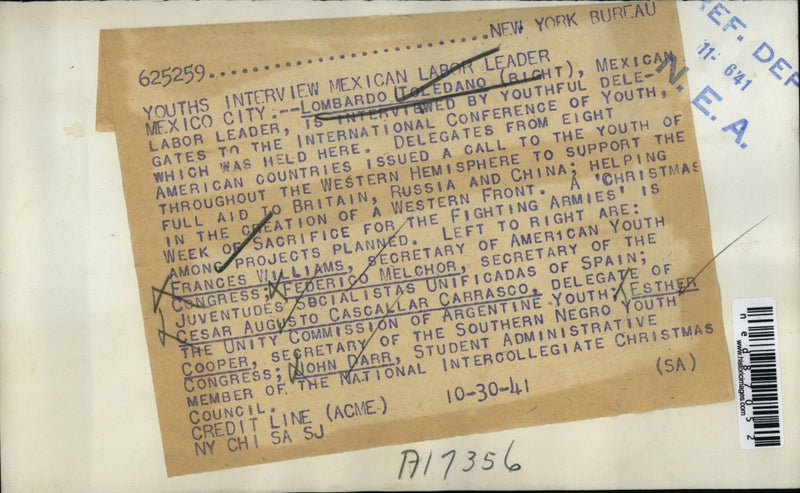 625259......................................NEW YORK BUREAU
YOUTHS INTERVIEW MEXICAN LABOR LEADER
MEXICO CITY:--LOMBARDO TOLEDANO (RIGHT), MEXICAN
LABOR LEADER, IS INTERVIEWED BY YOUTHFUL DELE-
GATES TO THE INTERNATIONAL CONFERENCE OF YOUTH,
WHICH WAS HELD HERE. DELEGATES FROM EIGHT
AMERICAN COUNTRIES ISSUED A CALL TO THE YOUTH OF
THROUGHOUT THE WESTERN HEMISPHERE TO SUPPORT THE
FULL AID TO BRITAIN, RUSSIA AND CHINA; HELPING
IN THE CREATION OF A WESTERN FRONT. A 'CHRISTMAS
WEEK OF SACRIFICE FOR THE FIGHTING ARMIES' IS
AMONG PROJECTS PLANNED. LEFT TO RIGHT ARE:
FRANCES WILLIAMS, SECRETARY OF AMERICAN YOUTH
CONGRESS; FEDERICO MELCHOR, SECRETARY OF THE
JUVENTUDES SOCIALISTAS UNIFICADAS OF SPAIN;
CESAR AUGUSTO CASCALLAR CARRASCO, DELEGATE OF
THE UNITY COMMISSION OF ARGENTINE YOUTH; ESTHER
COOPER, SECRETARY OF THE SOUTHERN NEGRO YOUTH
CONGRESS; JOHN DARR, STUDENT ADMINISTRATIVE
MEMBER OF THE NATIONAL INTERCOLLEGIATE CHRISTMAS
COUNCIL. (SA)
CREDIT LINE (ACME) 10-30-41
NY CHI SA SJ
A17356
REF. DEP
11- 6'41
N. E. A.
ned87052
www.historicimages.com